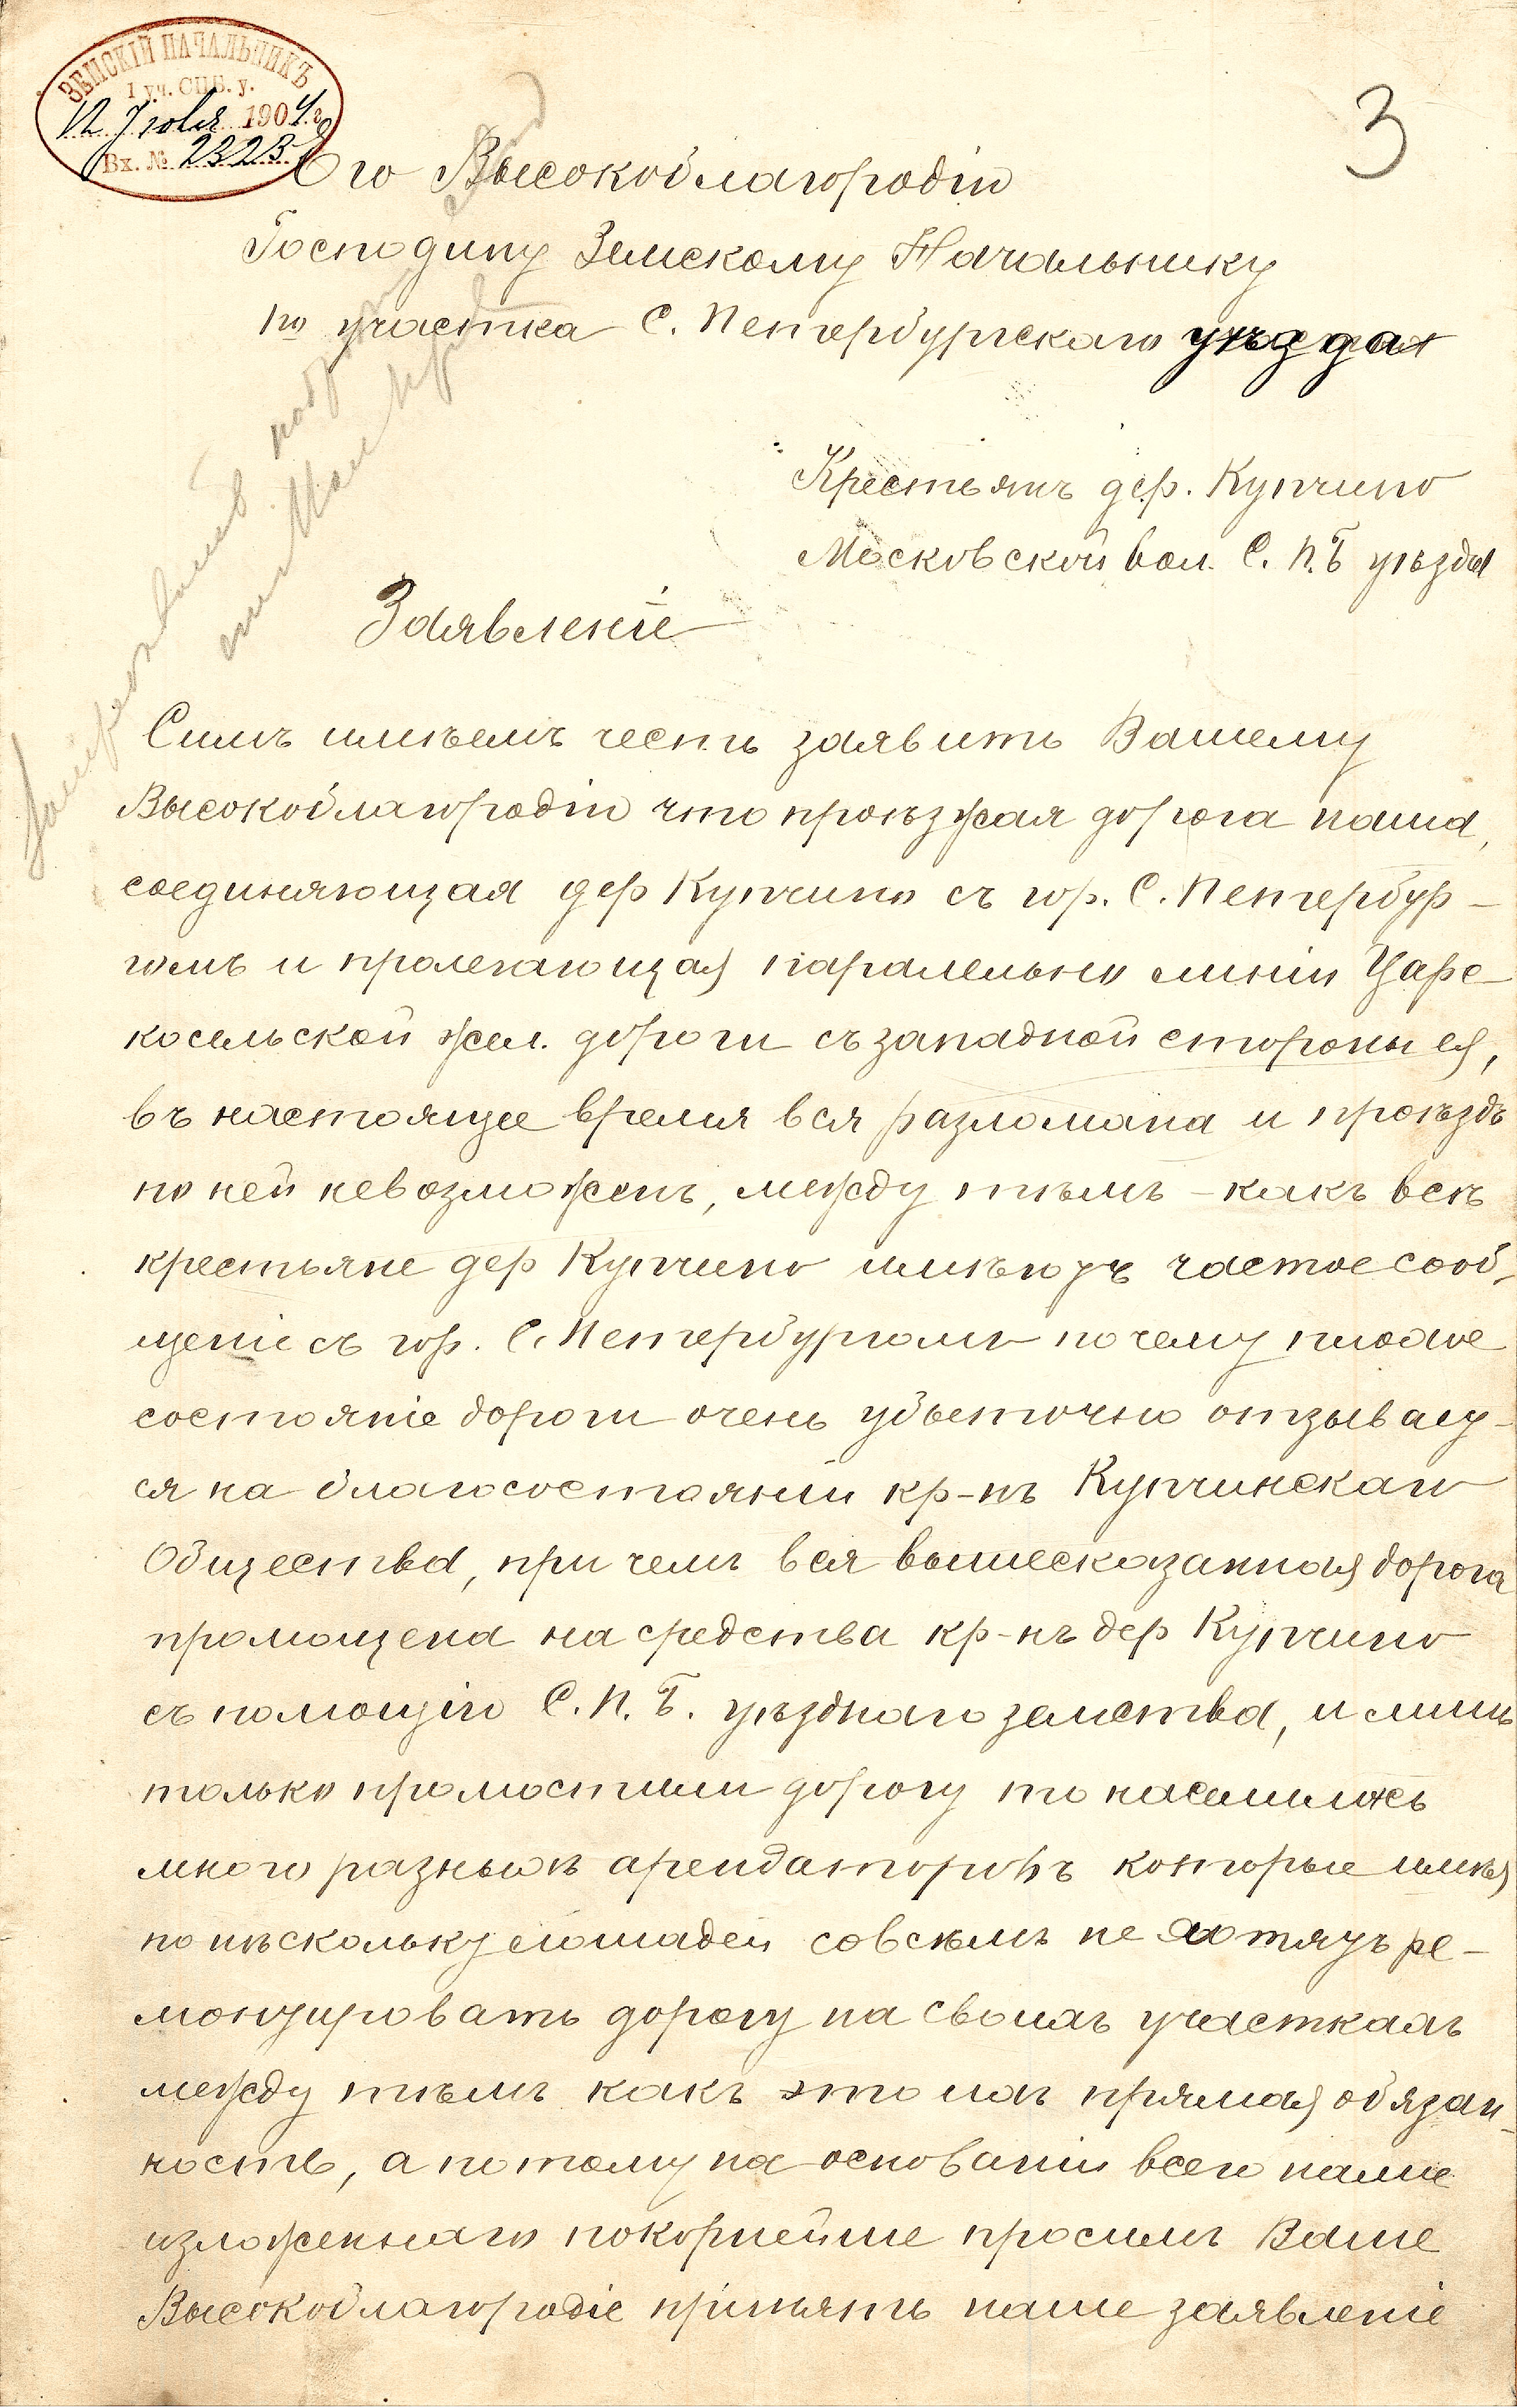 ЗЕМСКІЙ НАЧАЛЬНИКЪ
1 уч. СПБ. у.
12 Іюля 1904 г.
Вх. № 2323
3
Его Высокоблагородію
Господину Земскому Начальнику
1го участка С. Петербургскаго уѣзда
Крестьянъ дер. Купчино
Московской вол. С. П. Б уѣзда
Заявленіе
Симъ имѣемъ честь заявить Вашему
Высокоблагородію что проѣзжая дорога наша,
соединяющая дер Купчино съ гор. С. Петербур-
гомъ и пролегающая паралельно линіи Царс-
косельской жел. дороги съ западной стороны ея,
въ настоящее время вся разломана и проѣздъ
по ней невозможенъ, между тѣмъ - какъ всѣ
крестьяне дер Купчино имѣютъ частое сооб-
щеніе съ гор. С. Петербургомъ почему плохое
состояніе дороги очень убыточно отзывает-
ся на благосостояніи кр-нъ Купчинскаго
Общества, при чемъ вся вышесказанная дорога
промощена на средства кр-нъ дер Купчино
съ помощію С. П. Б. уѣзднаго земства, и лишь
только промостили дорогу то населилось
много разныхъ арендаторовъ которые имѣя
по нѣскольку лошадей совсѣмъ не хотятъ ре-
монтировать дорогу на своихъ участкахъ
между тѣмъ какъ это ихъ прямая обязан-
ность, а потому на основаніи всего нами
изложеннаго покорнейше просимъ Ваше
Высокоблагородіе принять наше заявленіе